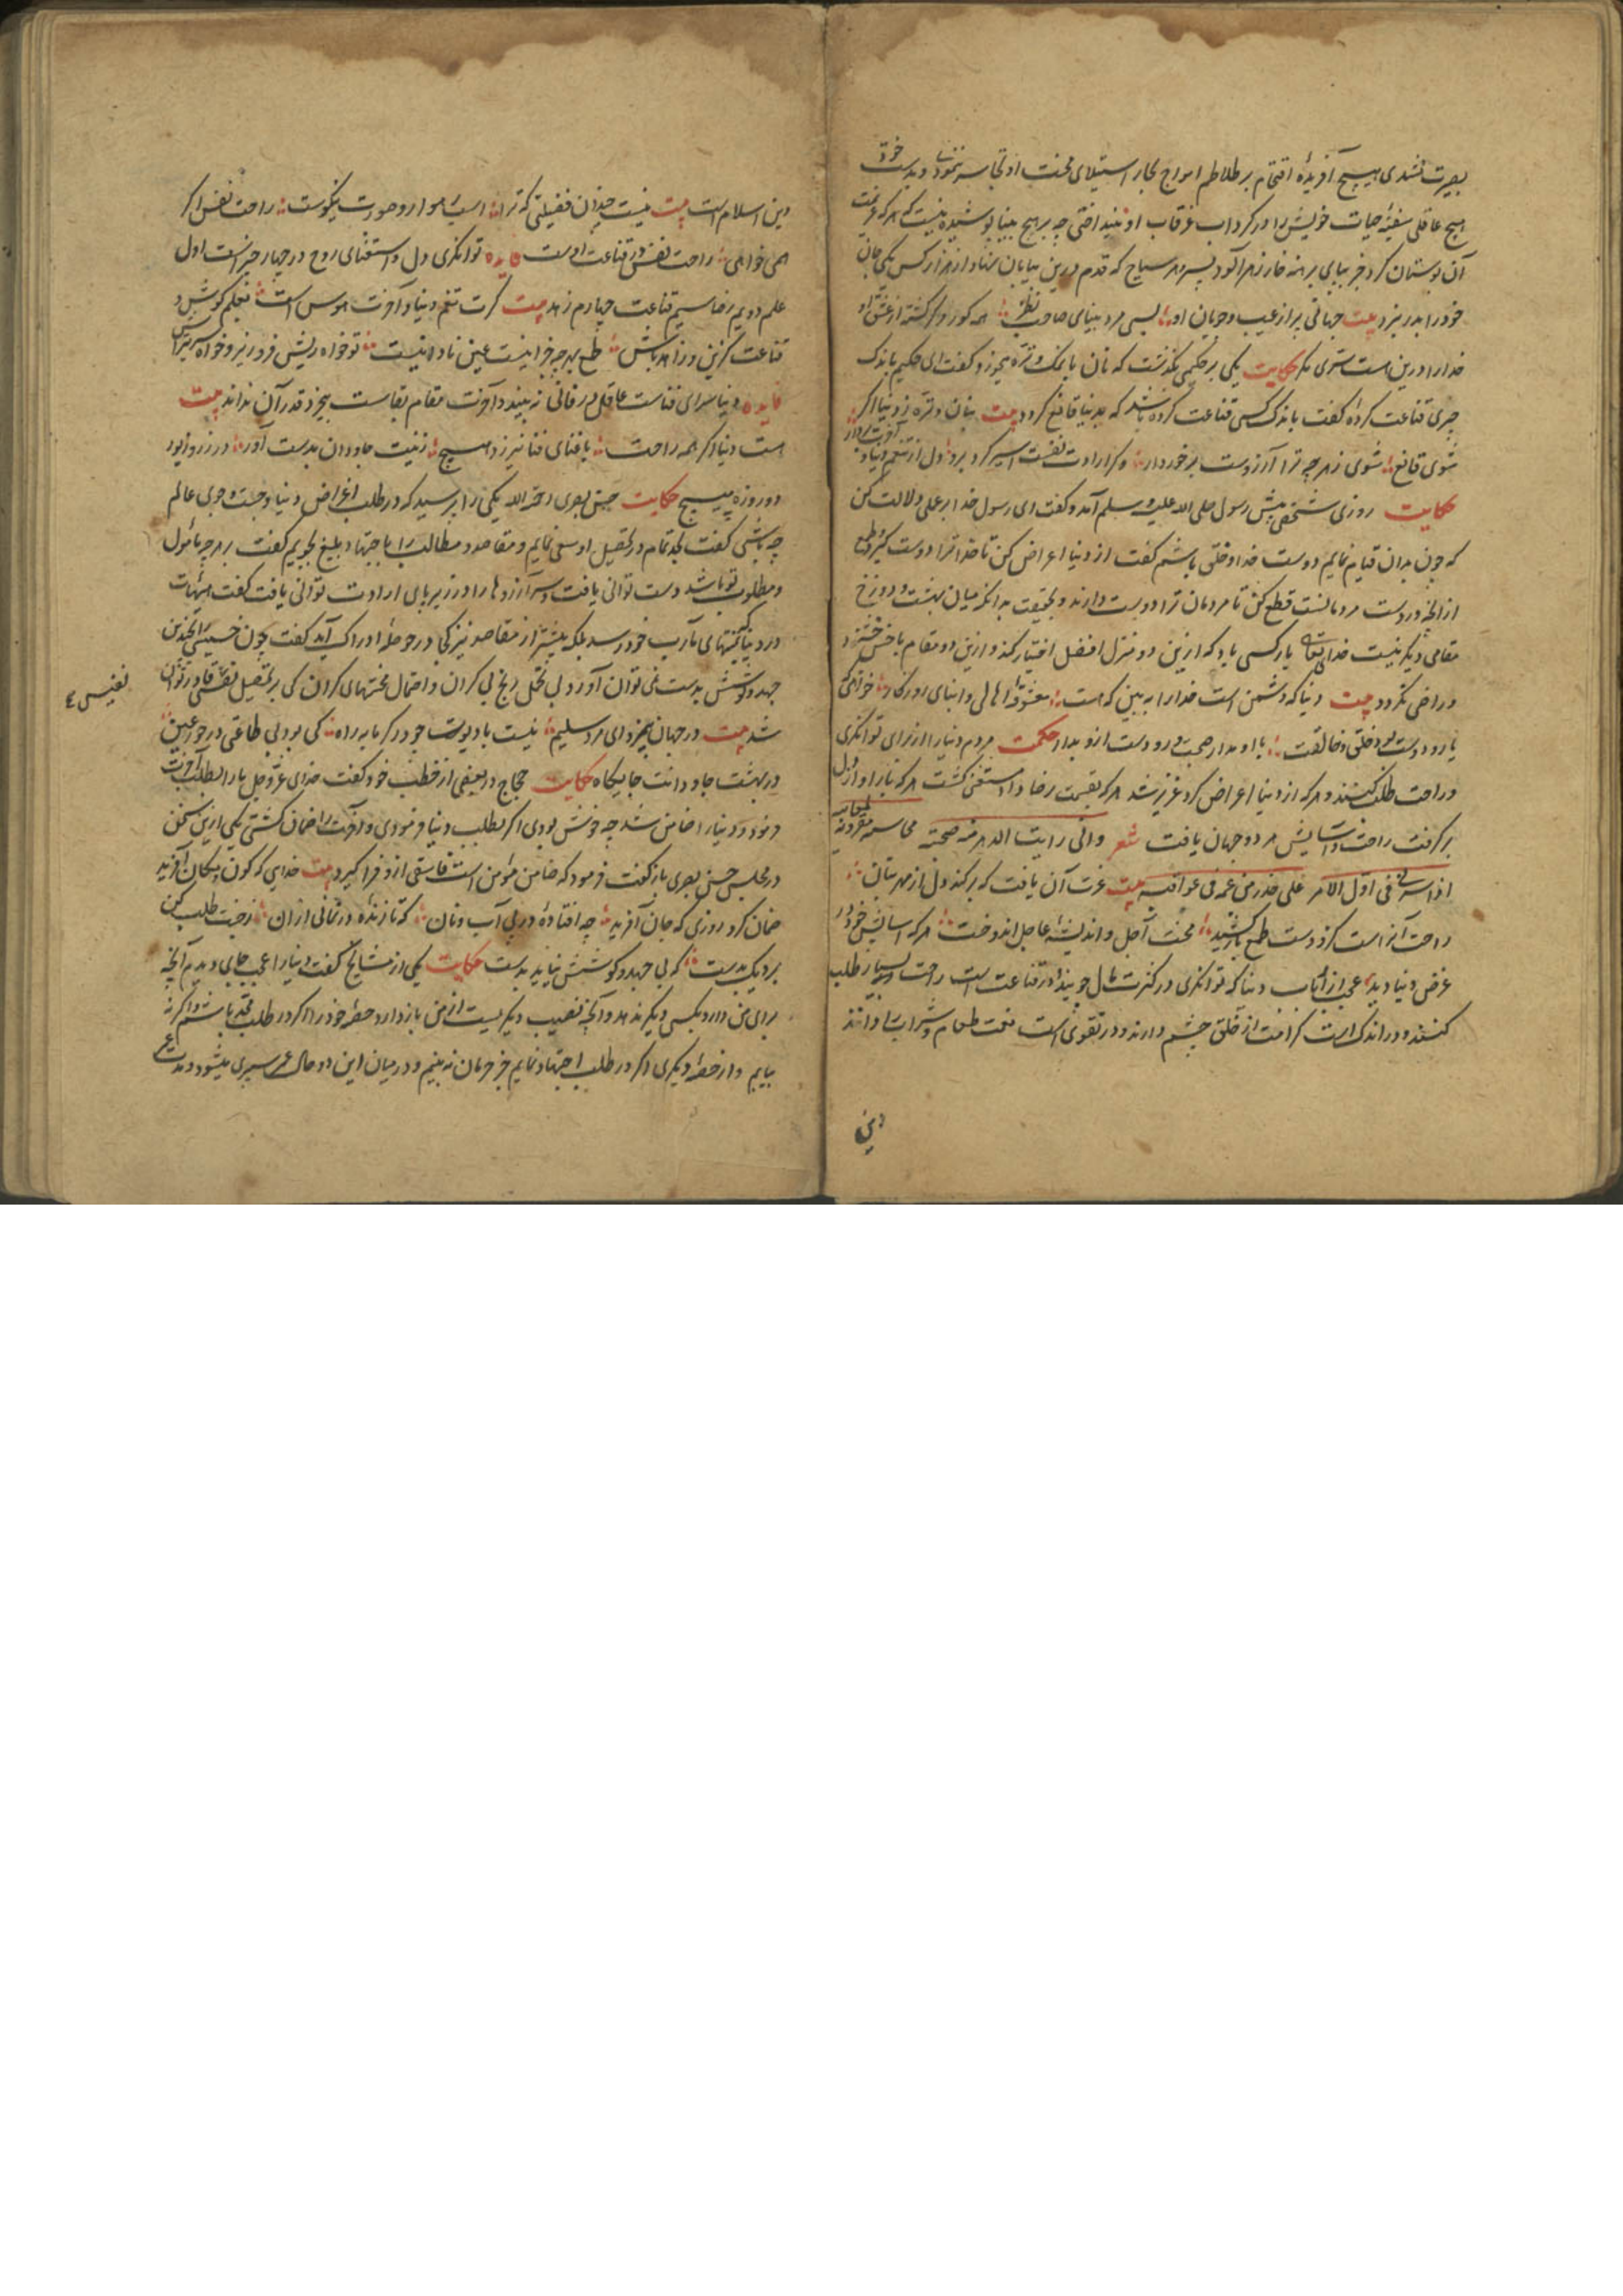 بصیرت نشدی هیچ آفریدهٔ اقتحام بر طلاطم امواج بحار استیلای محنت او تجاسر ننمودی و بدست خود
هیچ عاقل سفینهٔ حیات خویش را در کرداب غرقاب او نیند اختی چه بر هیچ بینا پوشیده نیست که هر که عزیمت
آن بوستان کرد جز بپای برهنه خار زهر آلود نسپرد هر سیاح که قدم درین بیابان نهاد از هزار کس یکی جان
خود را بدر نبرد بیت جهانی پر از عیب و جویان او بسی مرد بینای صاحب نظر همه کور و کر کشته از عشق او
خدا را درین است سری مکر حکایت یکی بر حکیمی بگذشت که نان با نمک و تره میخورد گفت ای حکیم باندک
چیزی قناعت کردهٔ گفت باندک کسی قناعت کرده باشد که بدنیا قانع کردد بیت بنان و تره ز دنیا اگر
شوی قانع شوی ز هر چه ترا آرزوست برخوردار و گر ارادت نفست اسیر کرد برو دل از تنعم دنیا و آخرت بردار
حکایت روزی شخصی پیش رسول صلی الله علیه و سلم آمد و گفت ای رسول خدا بر عملی دلالت کن
که چون بدان قیام نمایم دوست خدا و خلق باشم گفت از دنیا اعراض کن تا خدا ترا دوست گیرد و طمع
از آنچه در دست مردمانست قطع کن تا مردمان ترا دوست دارند و بحقیقت بدانکه میان بهشت و دوزخ
مقامی دیگر نیست خدای تعالی یار کسی باد که ازین دو منزل افضل اختیار کند و ازین دو مقام باخس خرسند
و راضی نگردد بیت دنیا که دشمن است خدا را ببین که هست معشوقهٔ اهالی و ابنای روزگار خواهی که
یار و دوست بود خلق و خالقت با او مدار صحبت و رو دست ازو بدار حکمت مردم دنیا را از برای توانگری
و راحت طلب کنند و هر که از دنیا اعراض کرد عزیز شد هر که بقسمت رضا داد مستغنی گشت هر که بار او از دل
بر گرفت راحت و آسایش هر دو جهان یافت شعر وانی رایت الدهر منذ صحبته محاسنه مقرونة بمعایبه
اذا سرنی فی اول الامر علی حذر من غمه فی عواقبه بیت عزت آن یافت که بر کند دل از مهر بتان
راحت آنراست کزو دست طمع باز کشید محنت آجل و اندیشهٔ عاجل اندوخت هر که آسایش خود در
غرض دنیا دید عجب از ارباب دنیا که توانگری در کثرت مال جویند و در قناعت است راحت در بسیار طلب
کنند و در اندک است کرامت از خلق چشم دارند و در تقوی است نعمت طعام و شراب را دانند
دین
دین اسلام است بیت نیست چندان فضیلتی که ترا است هموار و صورت نیکوست راحت نفس را گر
همی خواهی راحت نفس در قناعت اوست فایده توانگری دل و استغنای روح در چهار چیز است اول
علم دویم رضا سیم قناعت چهارم زهد بیت گرت تنعم دنیا و آخرت هوس است بعلم کوش و
قناعت گزین و زاهد باش طمع بهر چه جز اینست عین نادانیست تو خواه ریش فرو ریز و خواه سر بتراش
فایده دنیا سرای فناست عاقل در فانی نه بیند و آخرت مقام بقاست بیخرد قدر آن نداند بیت
هست دنیا اگر همه راحت با فنای فنا نیرزد هیچ زینت جاودان بدست آور در زر و زیور
دو روزه مپیچ حکایت حسن بصری رحمه الله یکی را پرسید که در طلب اغراض دنیا و جست و جوی عالم
چه باشی گفت بجد تمام در تحصیل او سعی نمایم و مقاصد و مطالب را باجتهاد بلیغ بجویم گفت بهر چه مأمول
و مطلوب تو باشد دست توانی یافت و سر آرزوها را در زیر پای ارادت توانی یافت گفت هیهات
در دنیا کسی بمنتهای مآرب خود نرسد بلکه بیشتر از مقاصد نیز کی در حوصلهٔ ادراک آید گفت چون خسیس را بچندین
جهد و کوشش بدست نمی توان آورد بی تحمل رنج بی کران و احتمال محنتهای گران کی بر تحصیل نفیس قادر توان
نفیس
شد بیت در جهان بیخرد ای مرد سلیم نیست بادیوت چو در گرمابه راه کی بود بی طاعتی در حور عین
در بهشت جاودانت جایگاه حکایت حجاج در بعضی از خطب خود گفت خدای عز و جل ما را بطلب آخرت
فرمود و دنیا را ضامن شد چه خوش بودی اگر بطلب دنیا فرمودی و آخرت را ضمان گشتی یکی ازین سخن
در مجلس حسن بصری باز گفت فرمود که ضامن مؤمن است فاسقی ازو فرا گیرد بیت خدایی که کون و مکان آفرید
ضمان کرد روزی که جان آفرید چه افتادهٔ در پی آب و نان که تا زندهٔ در نمانی از آن رخت طلب کن
بر دیک بدست که بی جهد و کوشش نیاید بدست حکایت یکی از مشایخ گفت دنیا را عجب جایی دیدم آنچه
برای من دارد بکسی دیگر ندهد و آنچه نصیب دیگریست از من باز دارد حصهٔ خود را اگر در طلب مجد باشم و اگر نه
بیابم و از حصهٔ دیگری اگر در طلب اجتهاد نمایم جز حرمان نه بینم و در میان این دو حال عمر سپری میشود و مدت